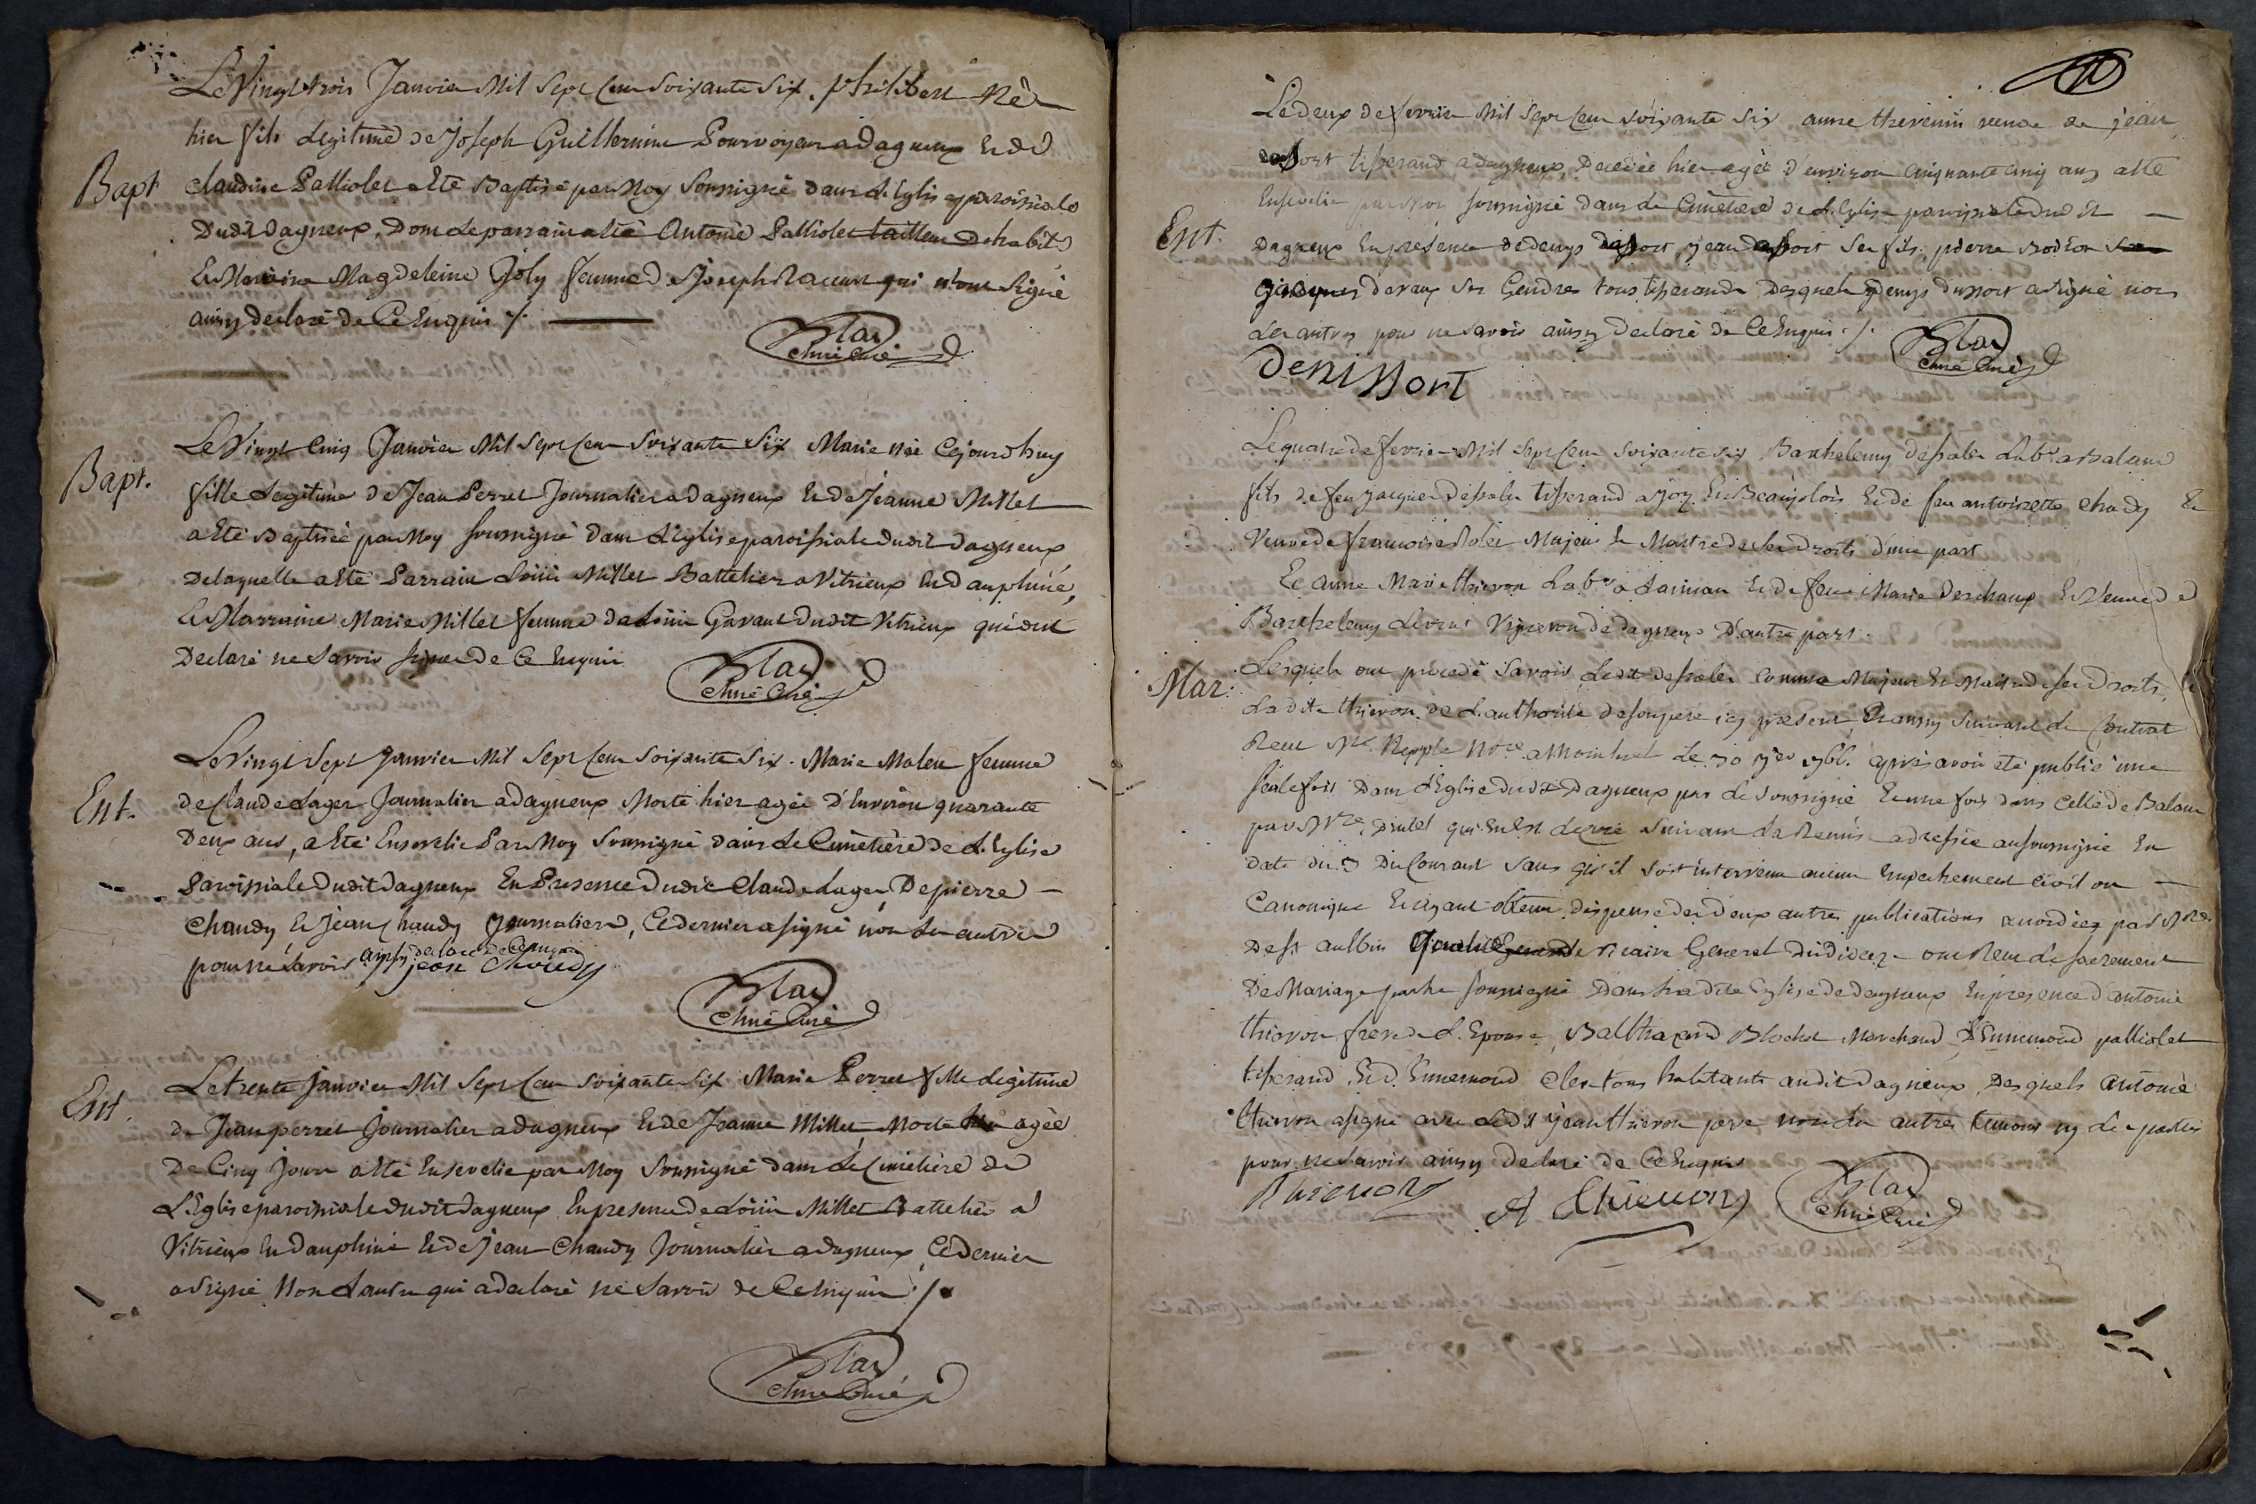 Le Vingt trois Janvier Mil Sept Cent Soixante Six. philibert Né
hier fils Legitime de Joseph Guillermin Pourvoyeur a Dagneux Et de
Bapt
Claudine Palliolet a Eté Baptisé par Moy Soussigné dans L'Eglise paroissiale
Dudit Dagneux, Dont le parrain a Eté Antoine Palliolet tailleur
Et Marraine Magdeleine Joly femme de Joseph qui n'ont Signé
ainsy declaré de Ce Enquis ./.
Blay
Curé
Le Vingt Cinq Janvier Mil Sept Cent Soixante Six Marie née Cejourdhuy
Bapt.
fille Legitime de Jean Perret Journalier a Dagneux Et de Jeanne Millet
a Eté Baptisée par Moy Soussigné dans L'Eglise paroissiale dudit Dagneux
De laquelle a Eté Parrain Loüis Millet Battelier a Vitrieux En Dauphiné,
Et Marraine Marie Millet femme de Loüis Gavant dudit Vitrieux qui ont
Declaré ne Savoir Signer de Ce Enquis
Blay
Curé
Le Vingt Sept Janvier Mil Sept Cent Soixante Six. Marie Maleu femme
Ent.
de Claude Lager Journalier a Dagneux Morte hier agée d'Environ quarante
Deux ans, a Eté Ensevelie Par Moy Soussigné dans Le Cimetière de L'Eglise
Paroissiale Dudit Dagneux En Presence Dudit Claude Lager, De pierre
Chaudy Et Jean Chaudy Journaliers, Ce dernier a signé non Les autres
pour ne Savoir ainsy declaré de Ce Enquis
jean Chaudy
Blay
Curé
Le trente Janvier Mil Sept Cent Soixante Six Marie Perret fille Legitime
Ent.
de Jean perret Journalier a Dagneux Et de Jeanne Millet, Morte hier agée
De Cinq Jours a Eté Ensevelie par Moy Soussigné dans Le Cimetière de
L'Eglise paroissiale dudit Dagneux En presence de Loüis Millet Battelier a
Vitrieux En Dauphiné Et de Jean Chaudy Journalier a Dagneux, Ce dernier
a Signé Non L'autre qui a declaré ne Savoir de Ce Enquis ./.
Blay
Curé
Le deux de fevrier Mil Sept Cent soixante Six anne thevenin veuve de jean
tisserand a Dagneux, Decedée hier agée d'environ Cinquante Cinq ans a Eté
Ensevelie par Moy soussigné dans Le Cimetière de L'Eglise paroissiale dudit
Ent.
Dagneux En présence de denys jean ses fils, pierre
devaux Ses Gendres tous tisserands Desquels denys a signé non
Les autres pour ne savoir ainsy Declaré de Ce Enquis ./.
Blay
Curé
Denis
Le quatre de fevrier Mil Sept Cent Soixante Six Barthelemy Lab.r a Balan
fils de feu jacques tisserand a Joy En Beaujolois Et de feu antoinette Chady Et
Veuve de francoise Rolet Majeur Et Maitre de Ses Droits d'une part
Et anne Marie thievon Lab.r a Et de feue Marie Deschaux Et Veuve de
Barthelemy Vigneron de Dagneux D'autre part.
Lesquels ont procedé Savoir Ledit Comme Majeur Et Maitre de Ses Droits, Et
Mar:
Ladite thievon de L'authorité de Son pere icy present, Et ainsy Suivant Le Contrat
Receu M.e Nepple N.re a Montluel Le 30 après avoir été publié une
Seule fois Dans L'Eglise dudit Dagneux par Le Soussigné Et une fois dans Celle de Balan
par M.re qui En Est Curé suivant La Remise adressée au soussigné En
date du 3 Du Courant Sans qu'il Soit intervenu aucun Empechement Civil ou
Canonique Et ayant obtenu dispense des deux autres publications accordées par M.r
De St aulbin Vicaire General ont Receu Le sacrement
De Mariage par Le soussigné Dans Ladite Eglise de dagneux En presence d'antoine
thievon frere de L'Epouse, Balthazard Blochet Marchand, D'Ennemond palliolet
tisserand Et d'Ennemond Cler tous habitants audit Dagneux, Desquels antoine
thievon a signé avec Ledit jean thievon pere non Les autres temoins ny Les parties
pour ne Savoir ainsy Declaré de Ce Enquis
Thievon
A Thievon
Blay
Curé